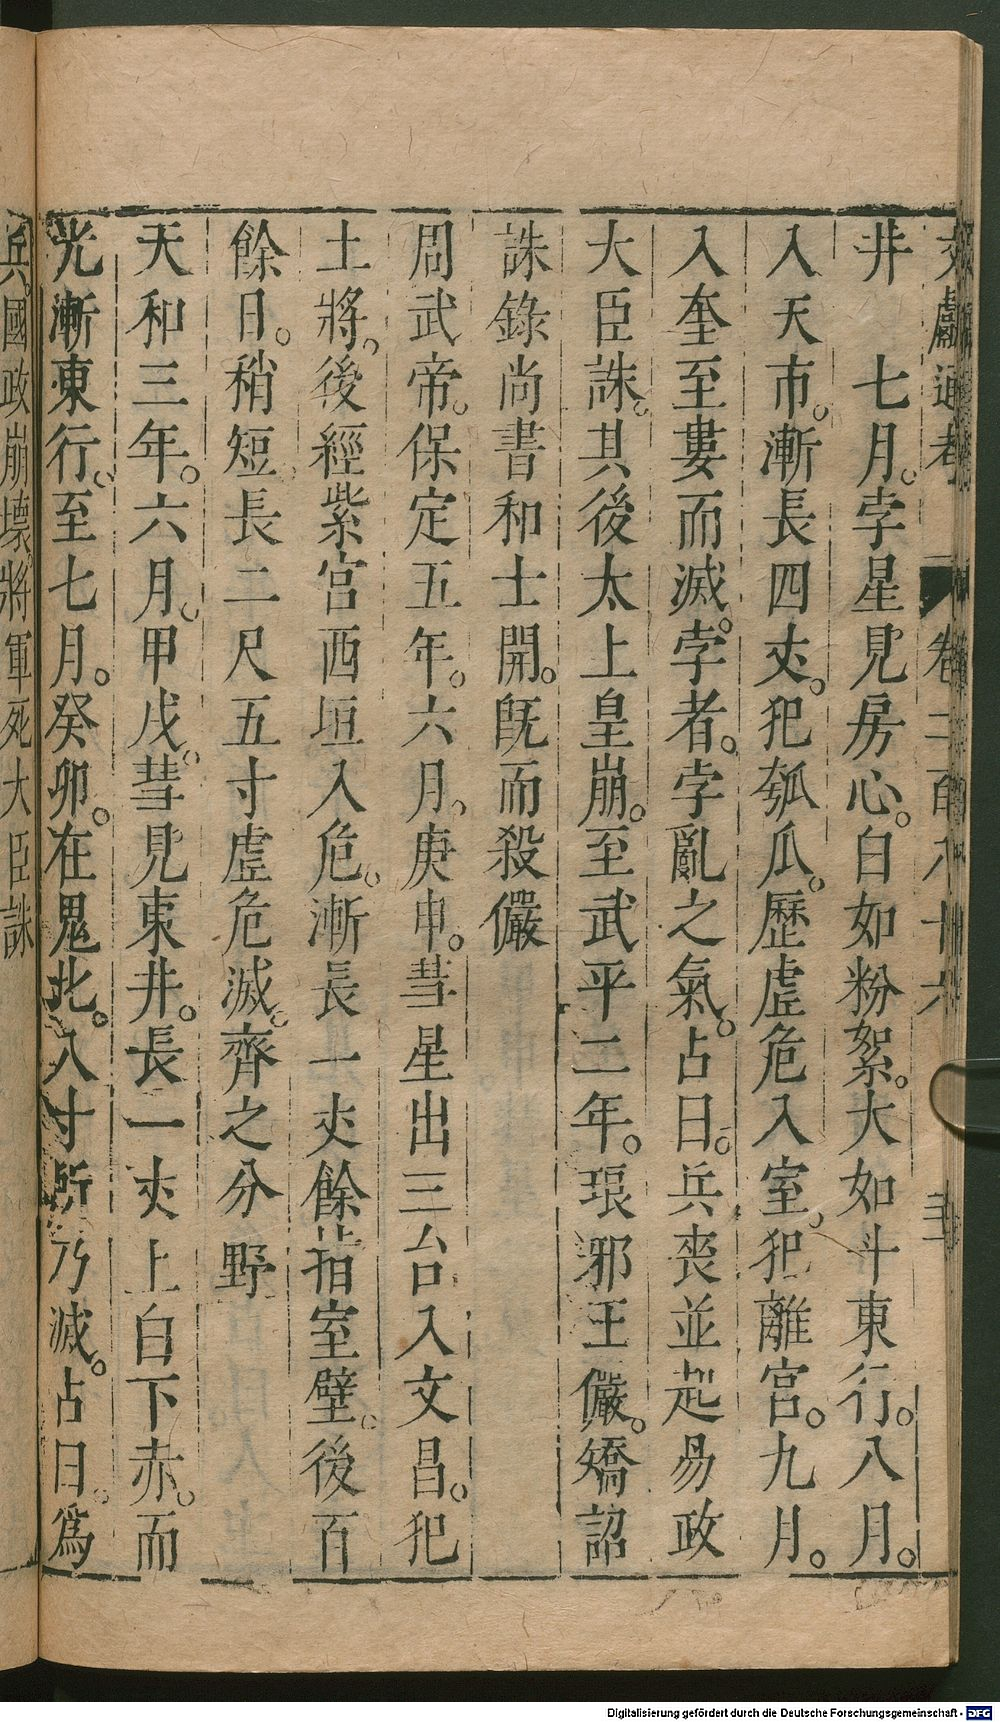 文獻通考 卷二百八十六
井　七月。孛星見房心。白如粉絮。大如斗東行。八月。
入天市。漸長四丈。犯瓠瓜。歷虛危入室。犯離宮。九月。
入奎至婁而滅。孛者。孛亂之氣。占曰。兵喪並起易政
大臣誅。其後太上皇崩。至武平二年。琅邪王儼。矯詔
誅錄尚書和士開。旣而殺儼
周武帝。保定五年。六月。庚申。彗星出三台入文昌。犯
土將。後經紫宫西垣入危。漸長一丈餘指室壁。後百
餘日。稍短長二尺五寸虛危滅。齊之分野
天和三年。六月。甲戌。彗見東井。長一丈上白下赤。而
光漸東行。至七月。癸卯。在鬼北。八寸所乃滅。占曰。爲
兵。國政崩壞。將軍死大臣誅
Digitalisierung gefördert durch die Deutsche Forschungsgemeinschaft - DFG